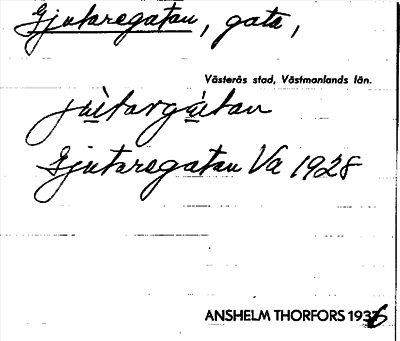 Gjutaregatan, gata,
Västerås stad, Västmanlands län.
Gjutaregatan Va 1928
ANSHELM THORFORS 1936